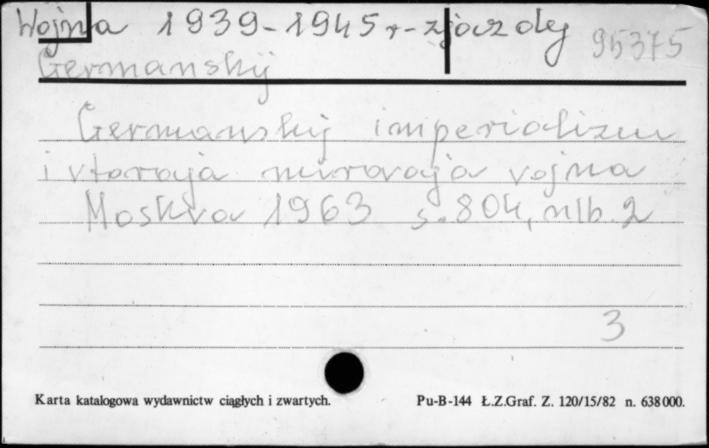 Wojna 1939-1945 r.-zjazdy
95375
Germanskij
Germanskij imperializm
i vtoraja mirovaja vojna
Moskva 1963 s.804, nlb.2
3
Karta katalogowa wydawnictw ciągłych i zwartych. Pu-B-144 Ł.Z.Graf. Z. 120/15/82 n. 638000.